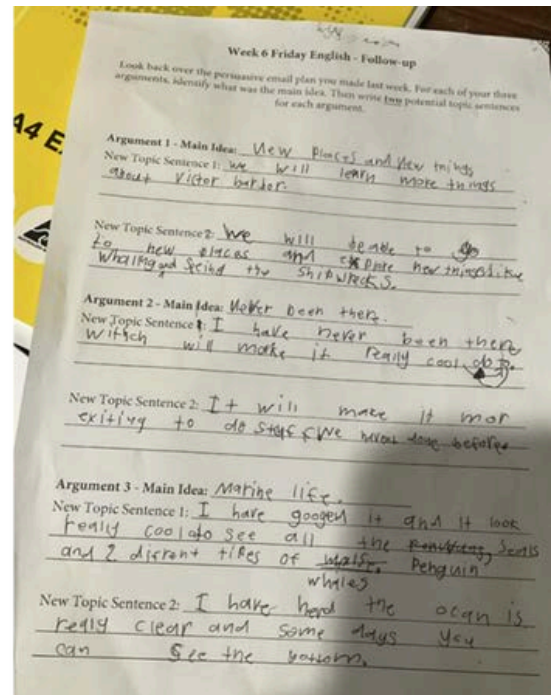 A4 E
Week 6 Friday English - Follow-up
Look back over the persuasive email plan you made last week. For each of your three
arguments, identify what was the main idea. Then write two potential topic sentences
for each argument.
Argument 1 - Main Idea: New places and New things
New Topic Sentence 1: we will learn more things
about Victor barbor.
New Topic Sentence 2: We will be able to go
to new places and explore new things like
whaling and seeing the shipwrecks.
Argument 2 - Main Idea: Never been there.
New Topic Sentence 1: I have never been there
witch will make it really cool to.
New Topic Sentence 2: It will make it mor
exiting to do stuff we havent done before
Argument 3 - Main Idea: Marine life.
New Topic Sentence 1: I have googed it and it look
really cool to see all the Seals
and 2 difrent tipes of Penguin
whales
New Topic Sentence 2: I have herd the ocan is
realy clear and some days you
can See the bottom.